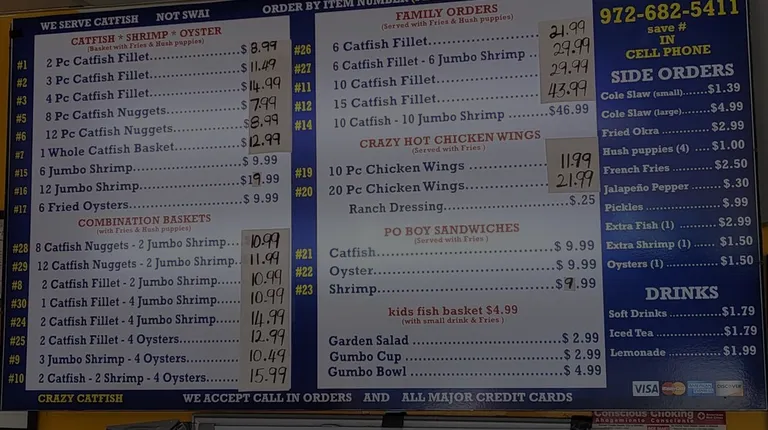 WE SERVE CATFISH NOT SWAI
ORDER BY ITEM NUMBER
CATFISH * SHRIMP * OYSTER
(Basket with Fries & Hush puppies)
#1 2 Pc Catfish Fillet $ 8.99
#2 3 Pc Catfish Fillet $ 11.49
#3 4 Pc Catfish Fillet $ 14.99
#5 8 Pc Catfish Nuggets $ 7.99
#6 12 Pc Catfish Nuggets $ 8.99
#7 1 Whole Catfish Basket $ 12.99
#15 6 Jumbo Shrimp $ 9.99
#16 12 Jumbo Shrimp $19.99
#17 6 Fried Oysters $ 9.99
COMBINATION BASKETS
(with Fries & Hush puppies)
#28 8 Catfish Nuggets - 2 Jumbo Shrimp 10.99
#29 12 Catfish Nuggets - 2 Jumbo Shrimp 11.99
#8 2 Catfish Fillet - 2 Jumbo Shrimp 10.99
#30 1 Catfish Fillet - 4 Jumbo Shrimp 10.99
#24 2 Catfish Fillet - 4 Jumbo Shrimp 14.99
#25 2 Catfish Fillet - 4 Oysters 12.99
#9 3 Jumbo Shrimp - 4 Oysters 10.49
#10 2 Catfish - 2 Shrimp - 4 Oysters 15.99
FAMILY ORDERS
(Served with Fries & Hush puppies)
#26 6 Catfish Fillet 21.99
#27 6 Catfish Fillet - 6 Jumbo Shrimp 29.99
#11 10 Catfish Fillet 29.99
#12 15 Catfish Fillet 43.99
#14 10 Catfish - 10 Jumbo Shrimp $46.99
CRAZY HOT CHICKEN WINGS
(Served with Fries )
#19 10 Pc Chicken Wings 11.99
#20 20 Pc Chicken Wings 21.99
Ranch Dressing $.25
PO BOY SANDWICHES
(Served with Fries )
#21 Catfish $ 9.99
#22 Oyster $ 9.99
#23 Shrimp $9.99
kids fish basket $4.99
(with small drink & Fries )
Garden Salad $ 2.99
Gumbo Cup $ 2.99
Gumbo Bowl $ 4.99
972-682-5411
save #
IN
CELL PHONE
SIDE ORDERS
Cole Slaw (small) $1.39
Cole Slaw (large) $4.99
Fried Okra $2.99
Hush puppies (4) $1.00
French Fries $2.50
Jalapeño Pepper $.30
Pickles $.99
Extra Fish (1) $2.99
Extra Shrimp (1) $1.50
Oysters (1) $1.50
DRINKS
Soft Drinks $1.79
Iced Tea $1.79
Lemonade $1.99
VISA DISCOVER
CRAZY CATFISH
WE ACCEPT CALL IN ORDERS AND ALL MAJOR CREDIT CARDS
Conscious Choking